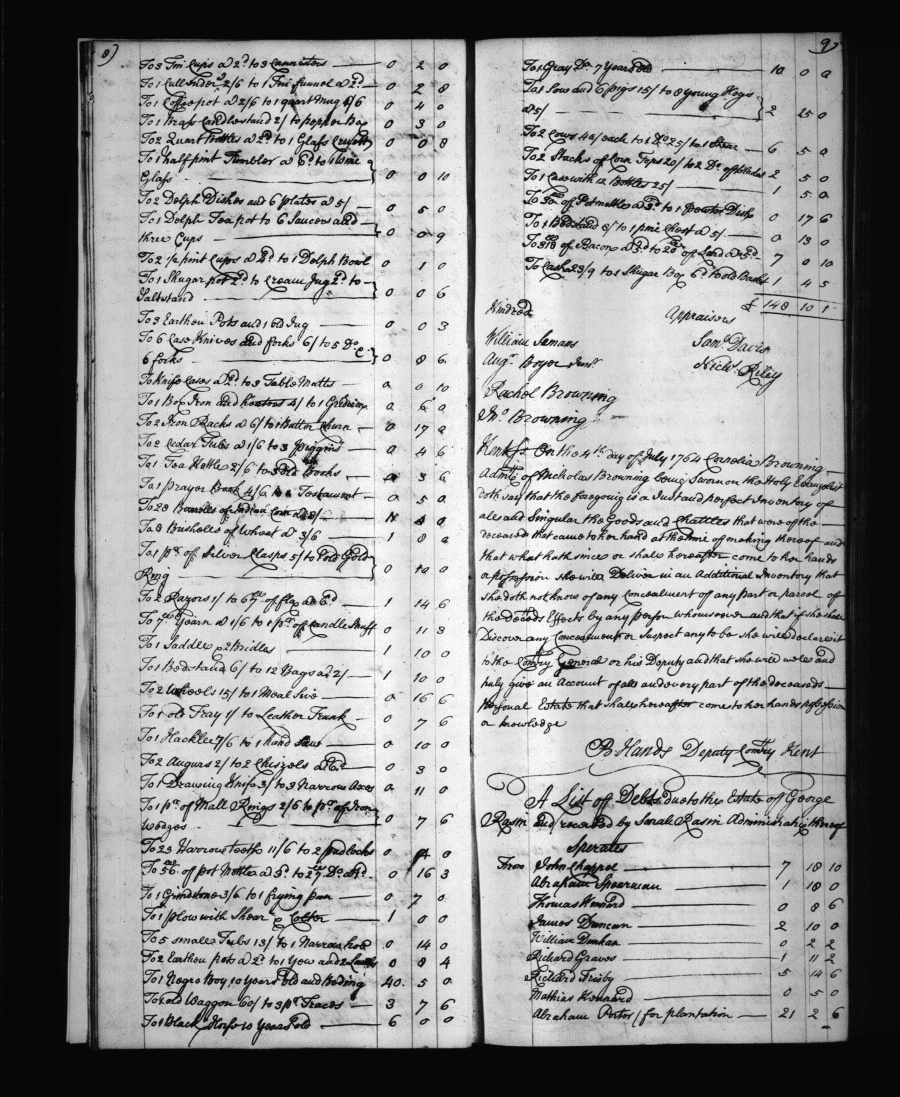 8)
To 3 Tin Cups a 2d to 3 Cannisters — 0 2 0
To 1 Cullinder 2/6 to 1 Tin funnel a 2d — 0 2 8
To 1 Coffee pot a 2/6 to 1 quart Mug 1/6 0 4 0
To 1 Brass Candlestand 2/ to pepper Box 0 3 0
To 2 Quart Bottles a 2d to 1 Glass Cruett 0 0 8
To 1 half pint Tumbler a 6d to 1 Wine
Glass — 0 0 10
To 2 Delph Dishes and 6 plates a 5/ — 0 5 0
To 1 Delph Tea pot to 6 Saucers and
three Cups — 0 0 9
To 2 Cups a 2d to 1 Delph Bowl 0 1 0
To 1 Shugar pot 2d to Cream Jug 2d to
Saltstand — 0 0 6
To 3 Earthen Pots and 1 old Jug — 0 0 3
To 6 Case Knives and forks 6/ to 5 Do &c
6 forks — 0 8 6
To Knife Cases a 2d to 3 Table Matts — 0 0 10
To 1 Box Iron and heaters 4/ to 1 Gridiron 0 6 0
To 2 Iron Racks a 6/ to 1 Butter Churn — 0 17 0
To 2 Cedar Tubs a 1/6 to 3 piggins — 0 4 6
To 1 Tea Kettle 2/6 to 3 Old Books — 0 3 6
To 1 prayer Book 4/6 to a Testament — 0 5 0
To 28 Barrels of Indian Corn a 8/ — 11 4 0
To 8 Bushells of Wheat a 3/6 — 1 8 0
To 1 pr of Silver Clasps 5/ to 1 old Gold
Ring — 0 10 0
To 2 Razors 1/ to 67 lb of flax a 6d — 1 14 6
To 7 lb Yearn a 1/6 to 1 pr of Candle Snuff 0 11 3
To 1 Saddle & 2 Bridles — 1 10 0
To 1 Bedstand 6/ to 12 Bags a 2/ — 1 10 0
To 2 Wheels 15/ to 1 Meal Sive — 0 16 6
To 1 old Tray 1/ to Leather Trunk — 0 7 6
To 1 Hackle 7/6 to 1 hand Saw — 0 10 0
To 2 Augurs 2/ to 2 Chizels a 6d — 0 3 0
To 1 Drawing Knife 3/ to 3 Narrow Axes 0 11 0
To 1 pr of Mall Rings 2/6 to pr of Iron
Wedges — 0 7 6
To 23 Harrow teeth 11/6 to 2 padlocks 0 14 0
To 56 lb of pot Mettle a 3d to 29 lb Do 0 16 3
To 1 Grindstone 3/6 to 1 frying pan — 0 7 0
To 1 plow with Shear & Colter — 1 0 0
To 5 small Tubs 13/ to 1 Narrow hoe 0 14 0
To 2 Earthen pots a 2d to 1 Yow and 2 Lambs 0 8 4
To 1 Negro Boy 10 years Old and Beding 40. 5 0
To 1 old Waggon 60/ to 3 pr Traces — 3 7 6
To 1 Black Horse 10 Years Old — 6 0 0
9)
To 1 Gray Do 7 Years Old — 10 0 0
To 1 Sow and 6 pigs 15/ to 8 young Hogs
a 5/ — 2 15 0
To 2 Cows 40/ each to 1 Do 25/ to 1 Stear — 6 5 0
To 2 Stacks of Corn Tops 20/ to 2 Do of blades 2 5 0
To 1 Case with 12 Bottles 25/ — 1 5 0
To 50 lb of Potmettle a 3d to 1 pewter Dish 0 17 6
To 1 Bedstead 8/ to 1 pine Chest a 5/ — 0 13 0
To 318 lb of Bacon a 3d to 20 lb of Lard 7 0 10
To Cash 23/9 to 1 Shugar Box 6d to old Books 1 4 5
£ 148 10 1
Kindred Appraisers
William Semans Sam. Davis
Augn. Boyer Junr. Nichs. Riley
Rachel Browning
Jno. Browning —
Kent ss. On the 4th day of July 1764 Cornelia Browning
Admx of Nicholas Browning being Sworn on the Holy Evangelist
doth say that the foregoing is a Just and perfect Inventory of
all and Singular the Goods and Chattles that were of the
deceased that came to her hand at the time of making thereof and
that what hath since or shall hereafter come to her hands
or possession she will Deliver in an Additional Inventory that
she doth not know of any Concealment of any part or parcel of
the deceds Effects by any person whomsoever and that if she shall
Discover any Concealment or Suspect any to be she will declare it
to the Comry General or his Deputy and that she will well and
truly give an Account of all and every part of the deceaseds
Personal Estate that shall hereafter come to her hands possession
or knowledge
B. Hands Deputy Comry Kent
A List of Debts due to the Estate off George
Rasin and received by Sarah Rasin Administratrix thereof
Sperates
From John Chappel — 7 18 10
Abraham Spearman — 1 18 0
Thomas Kennard — 0 8 6
James Duncan — 2 10 0
William Dunhan — 0 2 2
Richard Graves — 1 11 2
Richard Frisby — 5 14 6
Mathias Kennard — 0 5 0
Abraham Porter / for plantation — 21 2 6